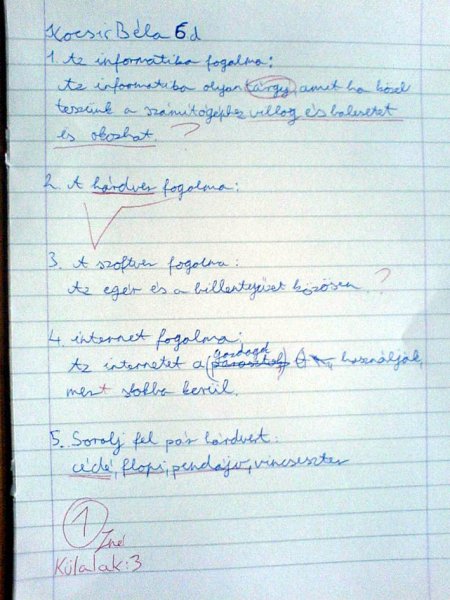 Kocsir Béla 6d
1. Az informatika fogalma:
Az informatika olyan tárgy, amit ha közel
teszünk a számítógéphez villog és balesetet
és okozhat. ?
2. A hárdver fogalma:
3. A szoftver fogalma:
Az egér és a billentyűvet közösen. ?
4. internet fogalma:
gazdagok
Az internetet a használják,
mert sokba kerül.
5. Sorolj fel pár hárdvert:
cédé, flopi, pendájv, vincseszter
1
Külalak: 3